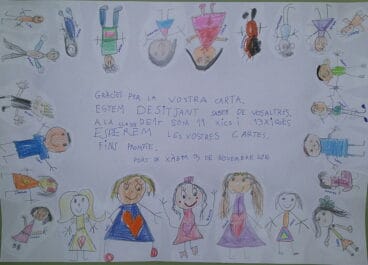 GRÀCIES PER LA VOSTRA CARTA.
ESTEM DESITJANT SABER DE VOSALTRES.
A LA CLASSE DE 1r SOM 11 XICS I 13 XIQUES
ESPEREM LES VOSTRES CARTES.
FINS PROMPTE.
PORT DE XÀBIA DE NOVEMBRE